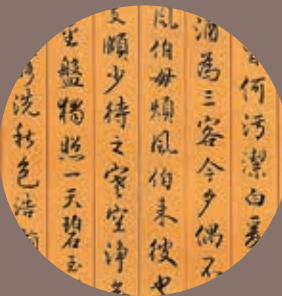 何污潔白
酒為三客今夕偶不
風伯毋煩風伯来彼也
頗少待之寥空淨
盤獨照一天碧玉
洗秋色浩